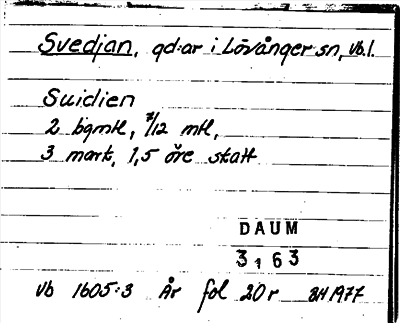 Svedjan, gd:ar i Lövånger sn, Vb.l.
Suidien
2 bgmtl, 7/12 mtl,
3 mark, 1,5 öre skatt
DAUM
3163
Vb 1605:3 År fol 20 r BH 1977